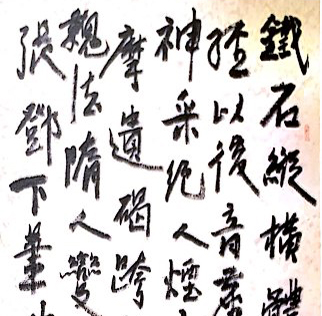 鐵石縱橫體
以後音
神采絕人煙
摩遺碣跨
魏法隋人變
張鄧下筆